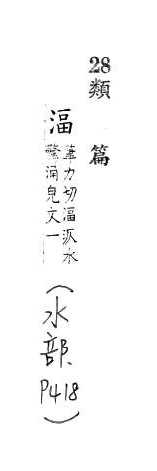 28類篇
湢
筆力切湢㳁水
驚涌皃文一
(水部、P418)